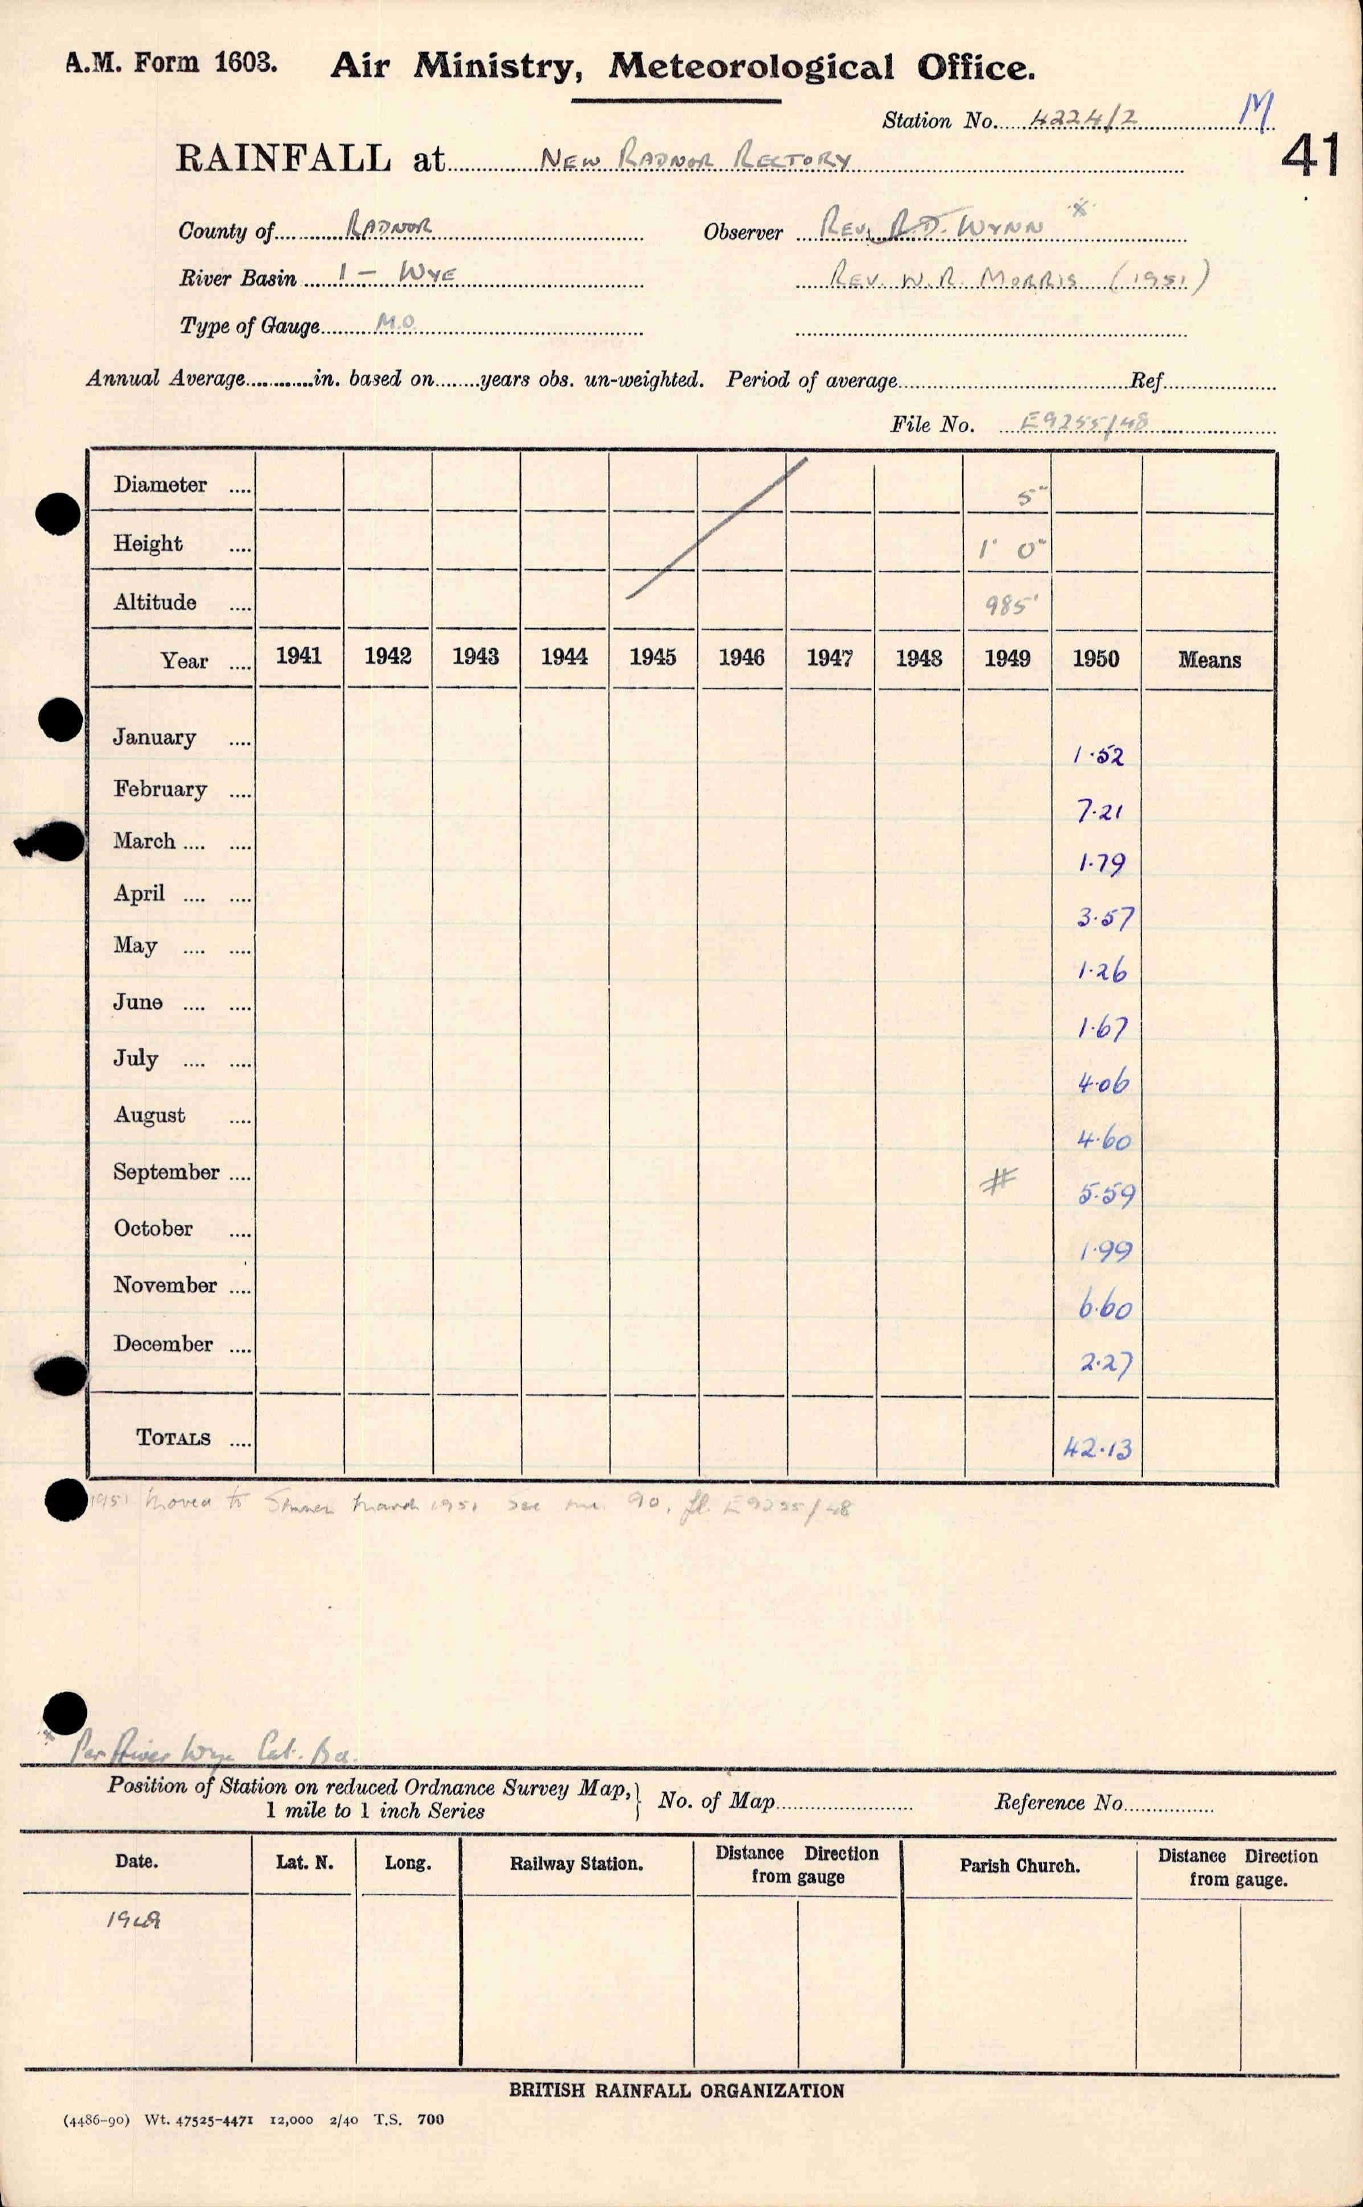 A.M. Form 1603. Air Ministry, Meteorological Office.
Station No. 4224/2 M
41
RAINFALL at NEW RADNOR RECTORY
County of RADNOR Observer REV. R.D. WYNN *
River Basin 1 - WYE REV. W.R. MORRIS (1951)
Type of Gauge M.O.
Annual Average............in. based on........years obs. un-weighted. Period of average............Ref............
File No. E9255/48
Diameter .... 5"
Height .... 1' 0"
Altitude .... 985'
Year .... 1941 1942 1943 1944 1945 1946 1947 1948 1949 1950 Means
January .... 1.52
February .... 7.21
March .... .... 1.79
April .... .... 3.57
May .... .... 1.26
June .... .... 1.67
July .... .... 4.06
August .... 4.60
September .... # 5.59
October .... 1.99
November .... 6.60
December .... 2.27
TOTALS .... 42.13
1951 Moved to March 1951 See 90, fl. E9255/48
* Per River Wye Cat. Bd.
Position of Station on reduced Ordnance Survey Map, } No. of Map............ Reference No............
1 mile to 1 inch Series
Date. Lat. N. Long. Railway Station. Distance Direction from gauge Parish Church. Distance Direction from gauge.
1949
BRITISH RAINFALL ORGANIZATION
(4486-90) Wt. 47525-4471 12,000 2/40 T.S. 700